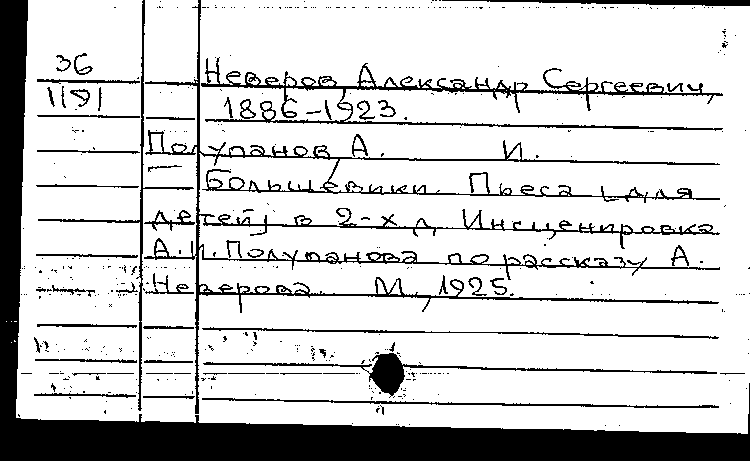 36
1191
Неверов, Александр Сергеевич,
1886-1923.
Полупанов, А. И.
Большевики. Пьеса [для
детей] в 2-х д. Инсценировка
А.И. Полупанова по рассказу А.
Неверова. М., 1925.